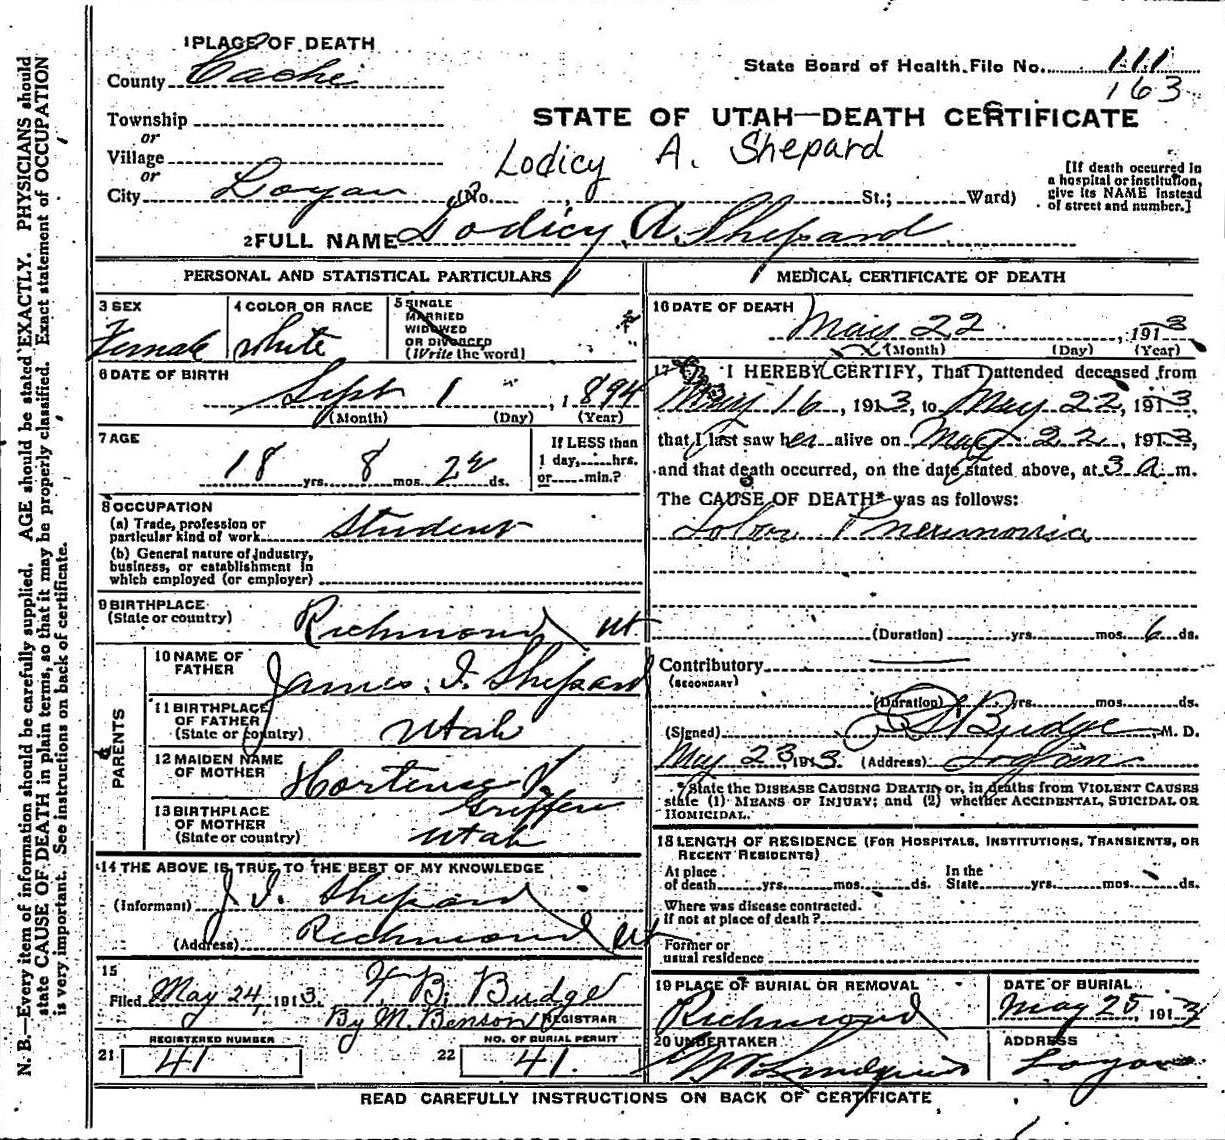 1 PLACE OF DEATH
County Cache
State Board of Health File No. 111
163
Township
or
Village
or
City Logan (No. , St.; Ward)
STATE OF UTAH—DEATH CERTIFICATE
Lodicy A. Shepard
[If death occurred in
a hospital or institution,
give its NAME instead
of street and number.]
2 FULL NAME Lodicy A. Shepard
PERSONAL AND STATISTICAL PARTICULARS
3 SEX
Female
4 COLOR OR RACE
White
5 SINGLE
MARRIED
WIDOWED
OR DIVORCED
(Write the word)
6 DATE OF BIRTH
Sept 1 , 1894
(Month) (Day) (Year)
7 AGE
18 yrs. 8 mos. 22 ds.
If LESS than
1 day, hrs.
or min.?
8 OCCUPATION
(a) Trade, profession or
particular kind of work Student
(b) General nature of industry,
business, or establishment in
which employed (or employer)
9 BIRTHPLACE
(State or country)
Richmond Ut
PARENTS
10 NAME OF
FATHER
James I. Shepard
11 BIRTHPLACE
OF FATHER
(State or country)
Utah
12 MAIDEN NAME
OF MOTHER
Hortense
Griffen
13 BIRTHPLACE
OF MOTHER
(State or country)
Utah
14 THE ABOVE IS TRUE TO THE BEST OF MY KNOWLEDGE
(Informant) J. I. Shepard
(Address) Richmond Ut
15
Filed May 24, 1913. F. B. Budge
By M. Benson REGISTRAR
REGISTERED NUMBER
21 41
NO. OF BURIAL PERMIT
22 41.
MEDICAL CERTIFICATE OF DEATH
16 DATE OF DEATH
May 22 , 1913
(Month) (Day) (Year)
17 I HEREBY CERTIFY, That I attended deceased from
May 16, 1913, to May 22, 1913,
that I last saw her alive on May 22, 1913,
and that death occurred, on the date stated above, at 3 a m.
The CAUSE OF DEATH* was as follows:
Lobar Pneumonia
(Duration) yrs. mos. 6 ds.
Contributory
(SECONDARY)
(Duration) yrs. mos. ds.
(Signed) Budge M. D.
May 23, 1913. (Address) Logan
*State the DISEASE CAUSING DEATH, or, in deaths from VIOLENT CAUSES
state (1) MEANS OF INJURY; and (2) whether ACCIDENTAL, SUICIDAL OR
HOMICIDAL.
18 LENGTH OF RESIDENCE (FOR HOSPITALS, INSTITUTIONS, TRANSIENTS, OR
RECENT RESIDENTS)
At place
of death yrs. mos. ds.
In the
State yrs. mos. ds.
Where was disease contracted.
if not at place of death?
Former or
usual residence
19 PLACE OF BURIAL OR REMOVAL
Richmond
DATE OF BURIAL
May 25, 1913
20 UNDERTAKER
Lindquist
ADDRESS
Logan
READ CAREFULLY INSTRUCTIONS ON BACK OF CERTIFICATE
N. B.—Every item of information should be carefully supplied. AGE should be stated EXACTLY. PHYSICIANS should
state CAUSE OF DEATH in plain terms, so that it may be properly classified. Exact statement of OCCUPATION
is very important. See instructions on back of certificate.